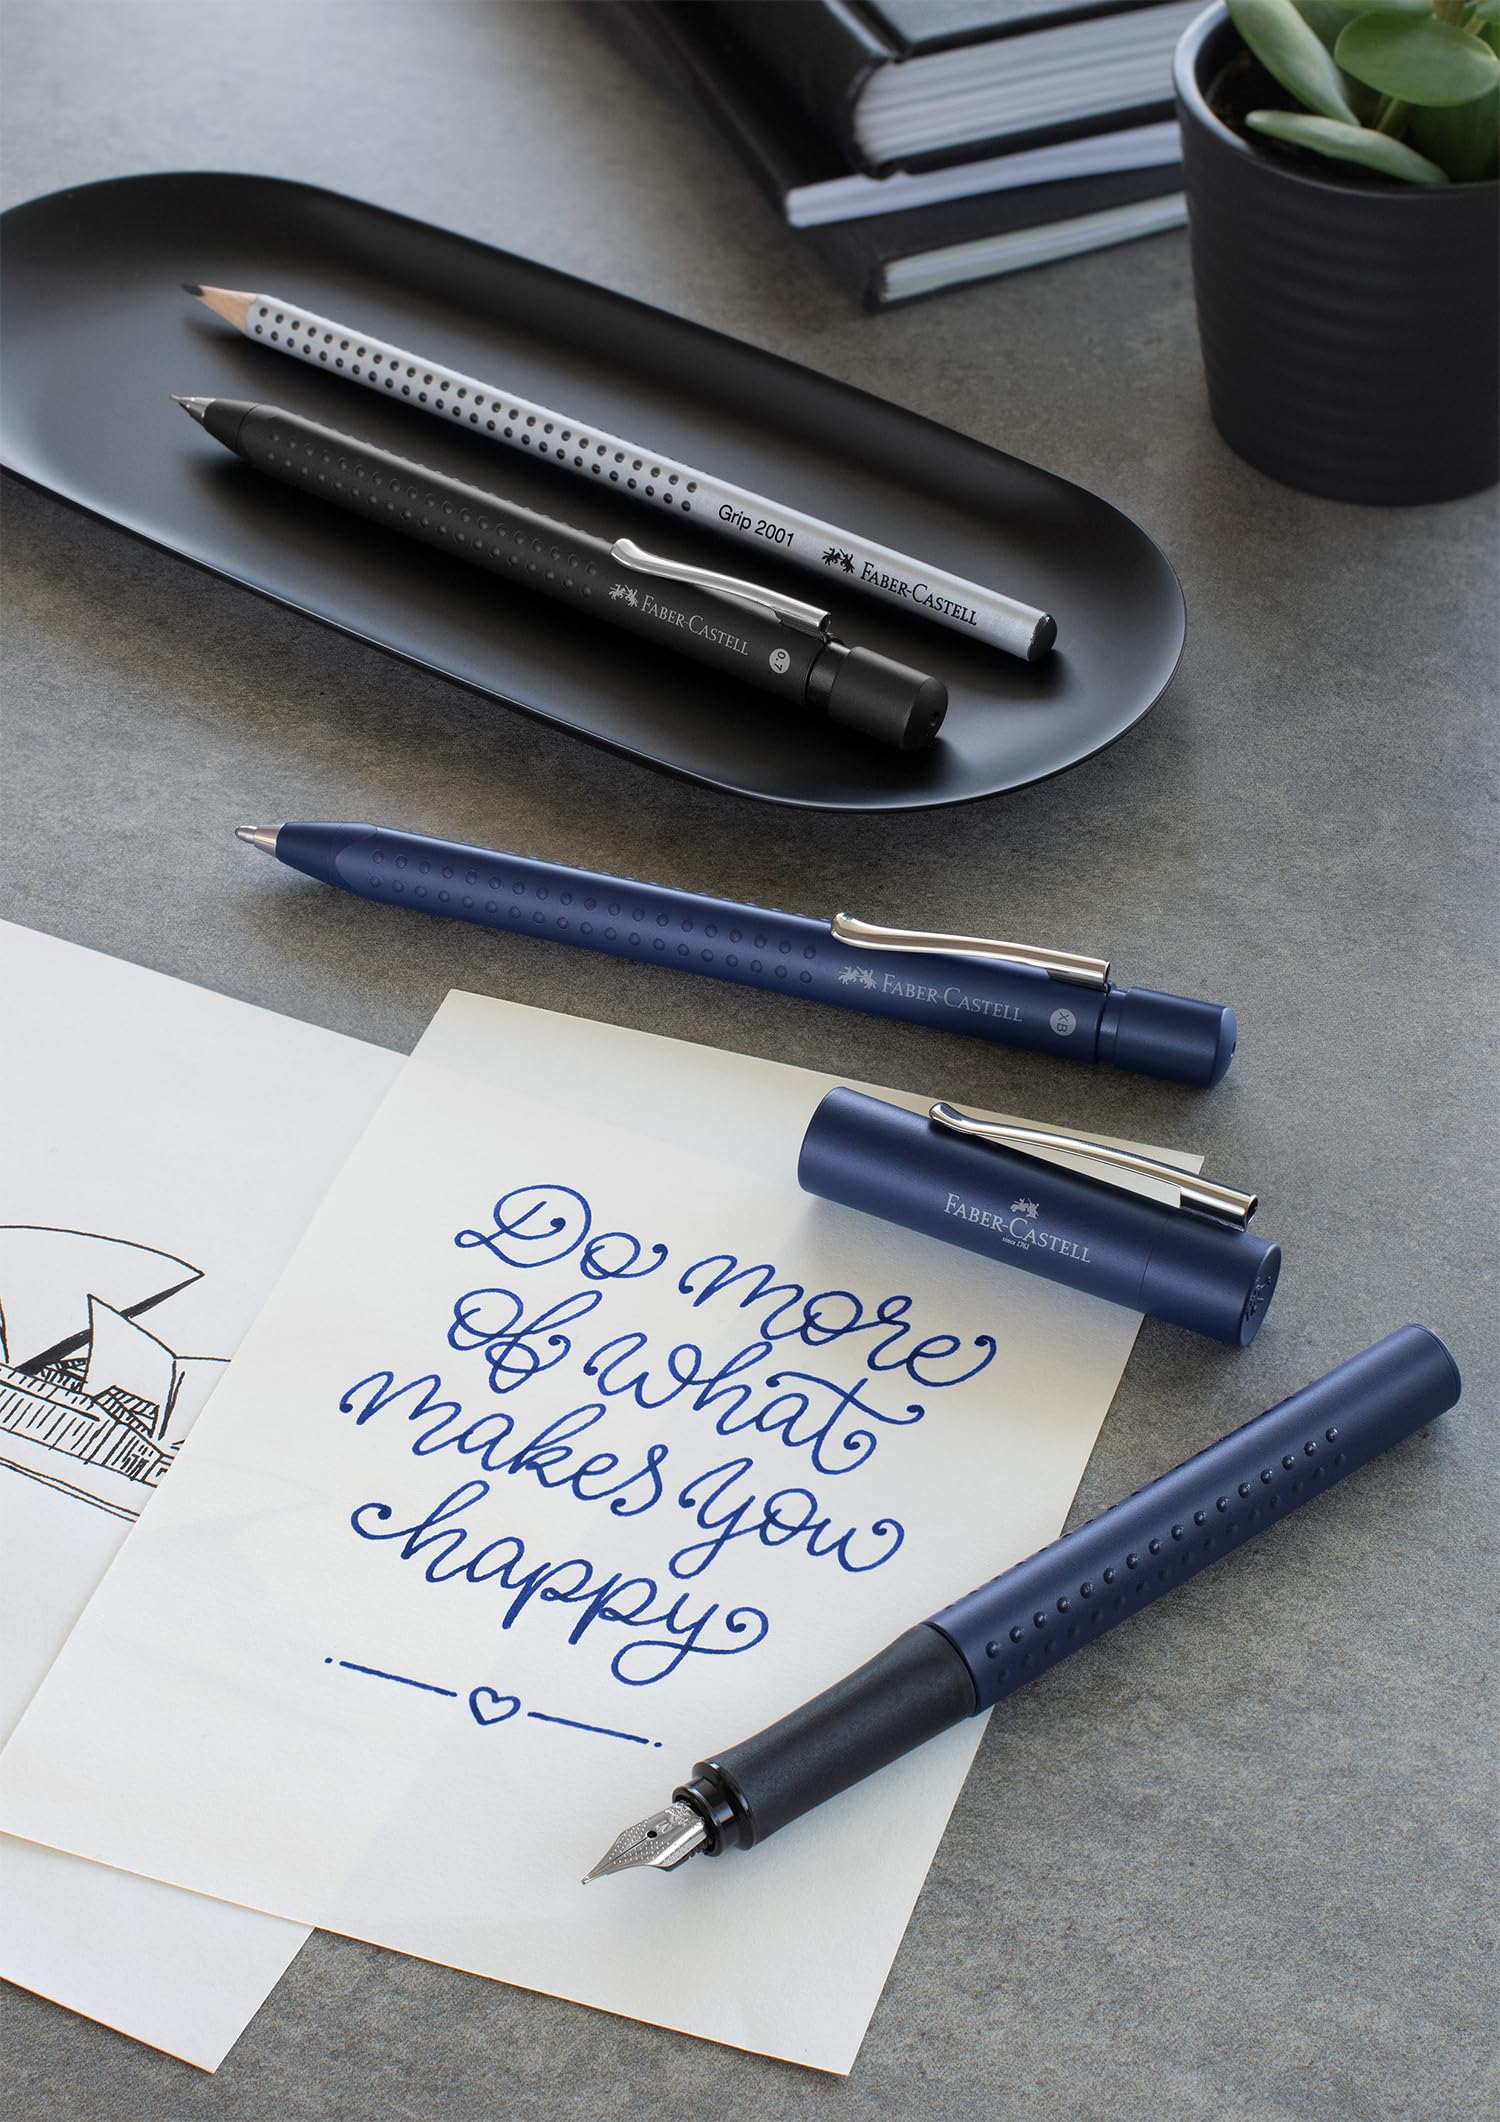 Grip 2001 FABER-CASTELL
FABER-CASTELL 0.7
FABER-CASTELL XB
FABER-CASTELL
since 1761
Do more
of what
makes you
happy